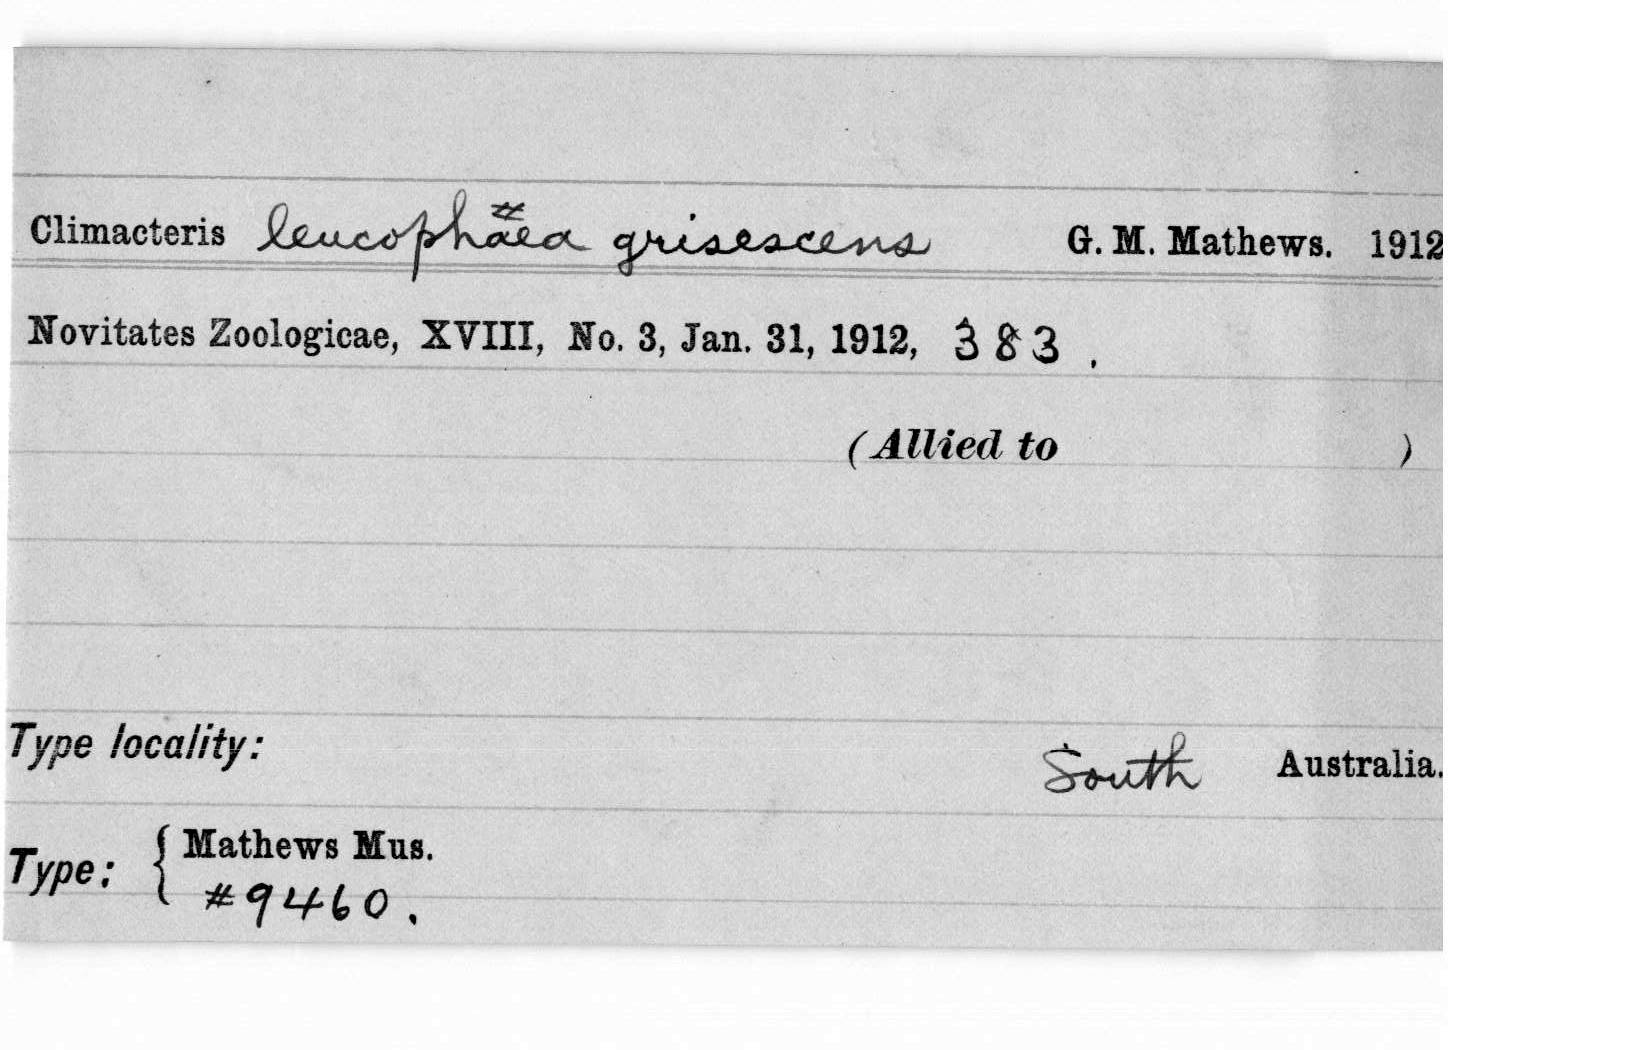 Climacteris leucophäea grisescens G. M. Mathews. 1912
Novitates Zoologicae, XVIII, No. 3, Jan. 31, 1912, 383.
(Allied to )
Type locality: South Australia.
Type: { Mathews Mus.
#9460.